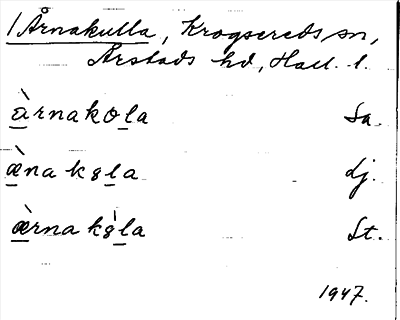 /Årnakulla, Krogsereds sn,
Årstads hd, Hall. l.
à̲rnakol̲a Sa.
æ̲̀nak8l̲a Lj.
æ̲̀rnak8̀l̲a St.
1947.